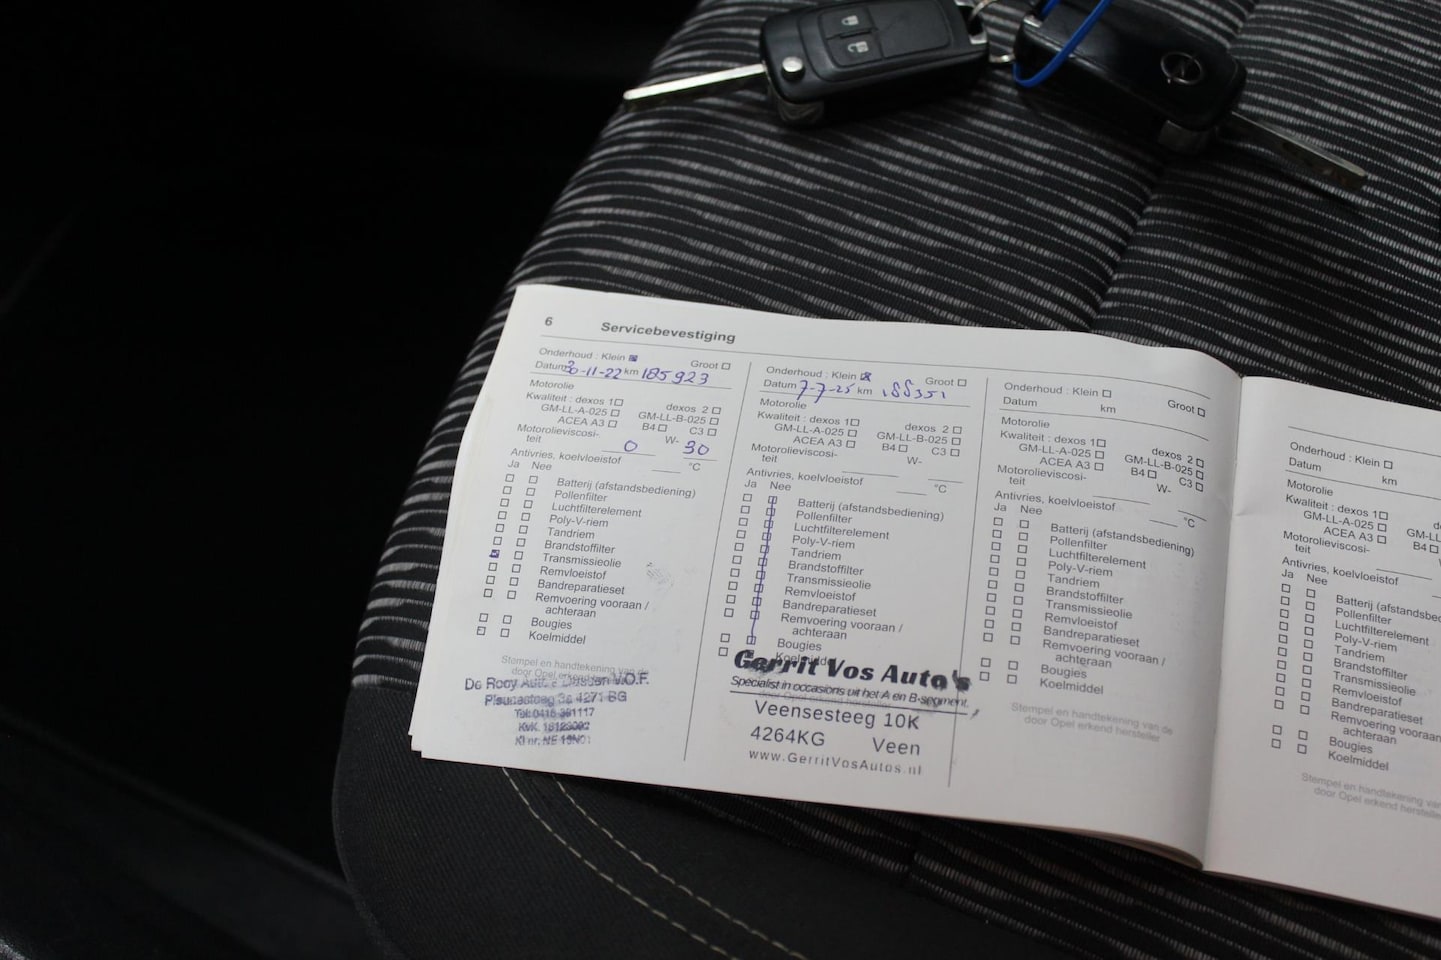 6 Servicebevestiging
Onderhoud : Klein Groot
Datum 30-11-22 km 185923
Motorolie
Kwaliteit : dexos 1 dexos 2
GM-LL-A-025 GM-LL-B-025
ACEA A3 B4 C3
Motorolieviscosi-
teit 0 W- 30
Antivries, koelvloeistof °C
Ja Nee
Batterij (afstandsbediening)
Pollenfilter
Luchtfilterelement
Poly-V-riem
Tandriem
Brandstoffilter
Transmissieolie
Remvloeistof
Bandreparatieset
Remvoering vooraan /
achteraan
Bougies
Koelmiddel
Stempel en handtekening van de
door Opel erkend
De Rooy V.O.F.
4271 BG
Onderhoud : Klein Groot
Datum 7-7-25 km 188351
Motorolie
Kwaliteit : dexos 1 dexos 2
GM-LL-A-025 GM-LL-B-025
ACEA A3 B4 C3
Motorolieviscosi-
teit W-
Antivries, koelvloeistof °C
Ja Nee
Batterij (afstandsbediening)
Pollenfilter
Luchtfilterelement
Poly-V-riem
Tandriem
Brandstoffilter
Transmissieolie
Remvloeistof
Bandreparatieset
Remvoering vooraan /
achteraan
Bougies
Koelmiddel
Gerrit Vos Auto's
Specialist in occasions uit het A en B-segment.
Veensesteeg 10K
4264KG Veen
www.GerritVosAutos.nl
Onderhoud : Klein Groot
Datum km
Motorolie
Kwaliteit : dexos 1 dexos 2
GM-LL-A-025 GM-LL-B-025
ACEA A3 B4 C3
Motorolieviscosi-
teit W-
Antivries, koelvloeistof °C
Ja Nee
Batterij (afstandsbediening)
Pollenfilter
Luchtfilterelement
Poly-V-riem
Tandriem
Brandstoffilter
Transmissieolie
Remvloeistof
Bandreparatieset
Remvoering vooraan /
achteraan
Bougies
Koelmiddel
Stempel en handtekening van de
door Opel erkend hersteller
Onderhoud : Klein
Datum km
Motorolie
Kwaliteit : dexos 1
GM-LL-A-025
ACEA A3 B4
Motorolieviscosi-
teit
Antivries, koelvloeistof
Ja Nee
Batterij (afstandsbe
Pollenfilter
Luchtfilterelement
Poly-V-riem
Tandriem
Brandstoffilter
Transmissieolie
Remvloeistof
Bandreparatieset
Remvoering vooraan
achteraan
Bougies
Koelmiddel
Stempel en handtekening van
door Opel erkend hersteller